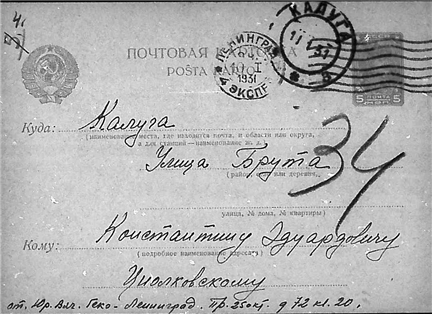 ПОЧТОВАЯ КАРТОЧКА
POŠTA KARTO
ЛЕНИНГРАД
I
1931
ЭКСП
КАЛУГА
31
5 5
Куда: Калуга
(наименование места, где находится почта, и области или округа,
а для станций — наименование ж. д.)
Улица Брута
(район или деревня)
34
улица, № дома, № квартиры)
Кому: Константину Эдуардовичу
(подробное наименование адресата)
Циолковскому
от. Юр. Вяч. Геко - Ленинград. Пр. 25 окт. д 72 кв. 20.